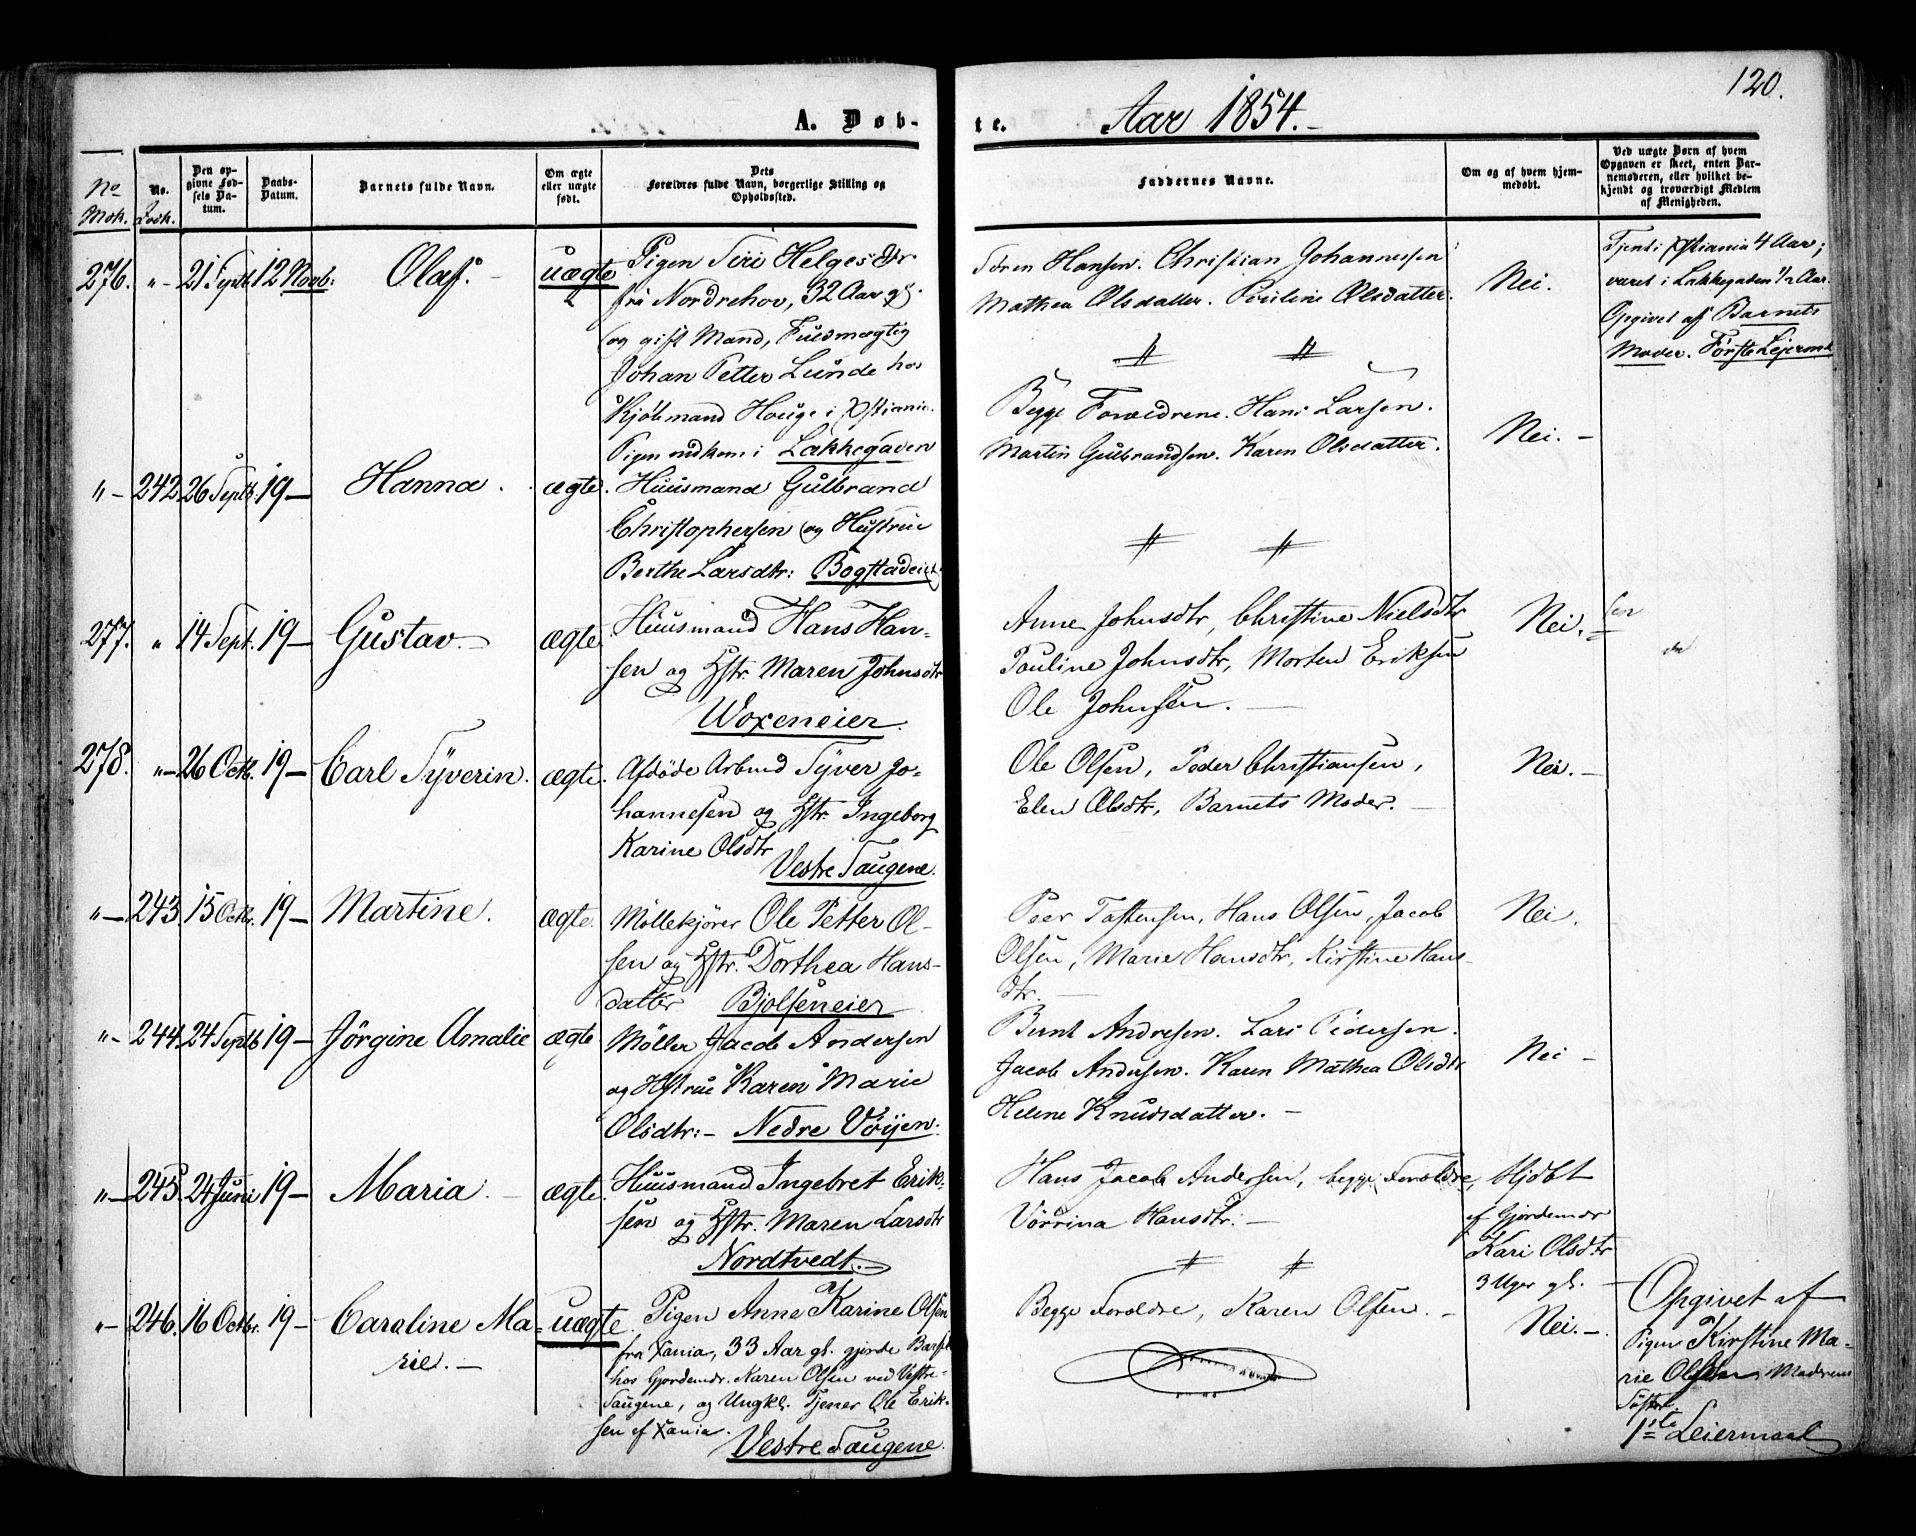 120.
A. Døb-
te. Aar 1854.-
No Mok.
No. Qvok.
Den opgivne Fødsels Datum.
Daabs-Datum.
Barnets fulde Navn.
Om ægte eller uægte født.
Dets Forældres fulde Navn, borgerlige Stilling og Opholdssted.
Faddernes Navne.
Om og af hvem hjemmedøbt.
Ved uægte Børn af hvem Opgaven er skeet, enten Barnemoderen, eller hvilket bekjendt og troværdigt Medlem af Menigheden.
276. "- 21 Septb 12 Novb: Olaf. - uægte
Pigen Siri Helgesdtr
fra Nordrehov, 32 Aar gl.
og gift Mand, Fuldmægtig
Johan Petter Lunde hos
Kjøbmand Houge i Xstiania.
Pigen nedkom i Lakkegaden
Søren Hansen. Christian Johannesen
Mathea Olsdatter. Pauline Olsdatter.
Nei.
Tjent i Xstiania 4 Aar;
været i Lakkegaden 1/2 Aar.
Opgivet af Barnets
Moder. Første Lejerml
"- 242 26 Septb. 19- Hanna. ægte.
Huusmand Gulbrand
Christophersen og Hustrue
Berthe Larsdtr: Bogstadeiet
Begge Forældrene. Hans Larsen.
Martin Gulbrandsen. Karen Olsdatter.
Nei. -
277. " 14 Sept. 19- Gustav. - ægte.
Huusmand Hans Han-
sen og Hstr. Maren Johnsdtr
Woxeneier.
Anne Johnsdtr, Christine Nielsdtr
Pauline Johnsdtr, Morten Eriksen
Ole Johnsen. -
Nei.
278. "- 26 Octb. 19- Carl Syverin. ægte.
Afdøde Arbmd Syver Jo-
hannesen og Hstr. Ingeborg
Karine Olsdtr
Vestre Saugene.
Ole Olsen, Peder Christiansen,
Elen Olsdtr, Barnets Moder. -
Nei. -
"- 243. 15 Octbr. 19- Martine. ægte.
Møllekjører Ole Petter Ol-
sen og Hstr. Dorthea Hans-
datter Bjølseneier
Peer Tostensen, Hans Olsen, Jacob
Olsen, Marie Hansdtr, Kirstine Hans-
dtr. -
Nei.
"- 244. 24 Septb 19- Jørgine Amalie ægte
Møller Jacob Andersen
og Hstrue Karen Marie
Olsdtr:- Nedre Vøyen.
Bernt Andresen. Lars Pedersen.
Jacob Andersen. Karen Mathea Olsdtr
Helene Knudsdatter. -
Nei -
"- 245. 24 Juni 19- Maria. - ægte.
Huusmand Ingebret Erik-
sen og Hstr. Maren Larsdtr
Nordtvedt. -
Hans Jacob Andersen, begge Forældre,
Vørrina Hansdtr. -
Hjdbt
af Gjordemdr
Kari Olsdtr
3 Uger gl. -
"- 246. 16 Octbr. 19- Caroline Ma-
rie. - uægte.
Pigen Anne Karine Olsen
fra Xania, 33 Aar gl. gjorde Barsel
hos Gjordemdr. Karen Olsen ved Vestre-
Saugene, og Ungkl. Tjener Ole Erik-
sen af Xania.
Vestre Saugene.
Begge Forældre, Karen Olsen. -
Nei. -
Opgivet af
Pigen Kirstine Ma-
rie Olsen, Moderens
Søster.
1ste Leiermaal